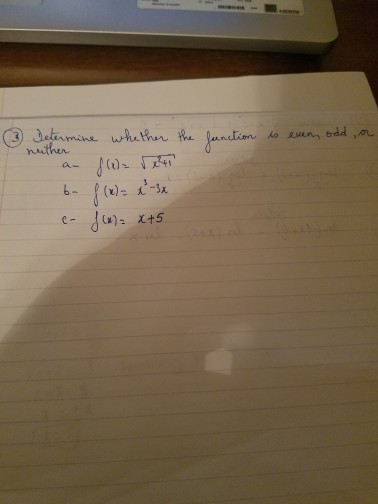 ③ Determine whether the function is even, odd, or
neither
a- f(x) = √x²+1
b- f(x) = x³-3x
c- f(x) = x+5